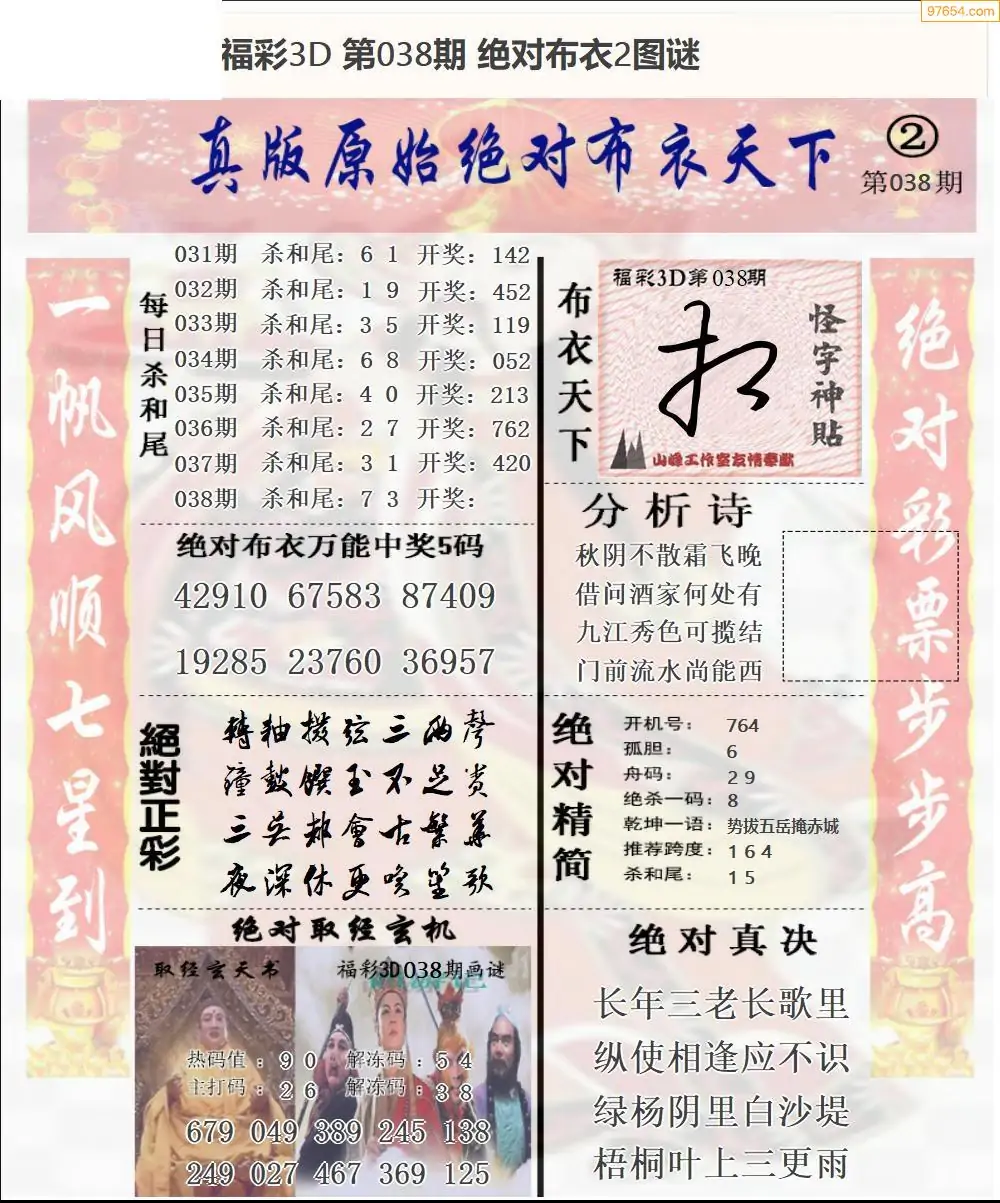 97654.com
福彩3D 第038期 绝对布衣2图谜
真版原始绝对布衣天下
②
第038期
一帆风顺七星到
每日杀和尾
031期 杀和尾：6 1 开奖：142
032期 杀和尾：1 9 开奖：452
033期 杀和尾：3 5 开奖：119
034期 杀和尾：6 8 开奖：052
035期 杀和尾：4 0 开奖：213
036期 杀和尾：2 7 开奖：762
037期 杀和尾：3 1 开奖：420
038期 杀和尾：7 3 开奖：
绝对布衣万能中奖5码
42910 67583 87409
19285 23760 36957
絕對正彩
轉軸撥弦三兩聲
撞鼓饌玉不足贵
三吴都會古繁華
夜深休更唤笙歌
绝对取经玄机
取经玄天书
福彩3D038期画谜
热码值：9 0 解冻码：5 4
主打码：2 6 解冻码：3 8
679 049 389 245 138
249 027 467 369 125
布衣天下
福彩3D第038期
怪字神貼
山峰工作室友情奉献
分析诗
秋阴不散霜飞晚
借问酒家何处有
九江秀色可揽结
门前流水尚能西
绝对精简
开机号：764
孤胆：6
舟码：2 9
绝杀一码：8
乾坤一语：势拔五岳掩赤城
推荐跨度：1 6 4
杀和尾：1 5
绝对真决
长年三老长歌里
纵使相逢应不识
绿杨阴里白沙堤
梧桐叶上三更雨
绝对彩票步步高